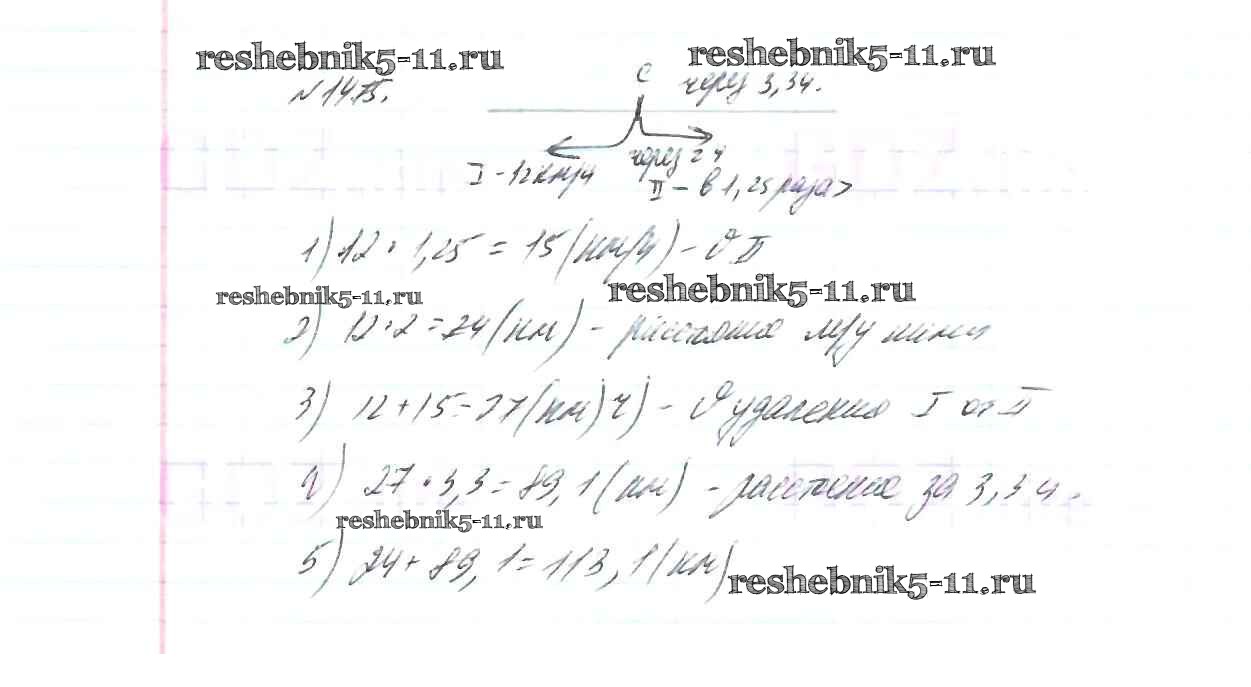 reshebnik5-11.ru reshebnik5-11.ru
№1475. C через 3,3ч.
через 2ч
I - 12км/ч II - в 1,25 раза >
1) 12 · 1,25 = 15 (км/ч) - υ II
reshebnik5-11.ru reshebnik5-11.ru
2) 12 · 2 = 24 (км) - расстояние м/у ними
3) 12 + 15 = 27 (км/ч) - υ удаления I от II
4) 27 · 3,3 = 89,1 (км) - расстояние за 3,3 ч.
reshebnik5-11.ru
5) 24 + 89,1 = 113,1 (км)
reshebnik5-11.ru